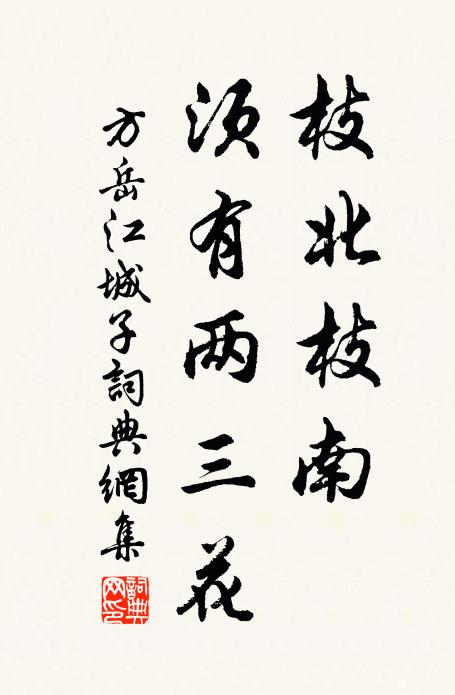 枝北枝南
須有两三花
方岳江城子詞典網集
詞典網印